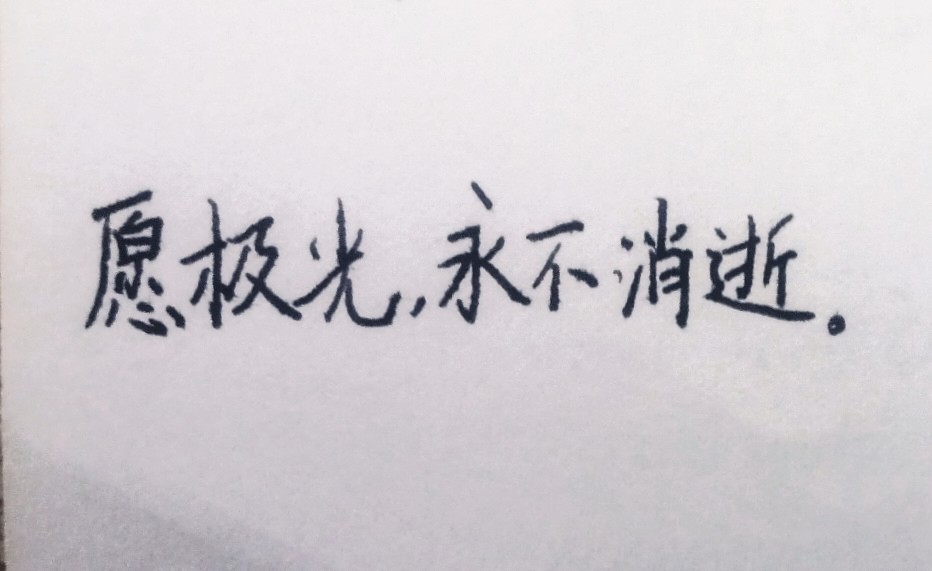 愿极光,永不消逝.